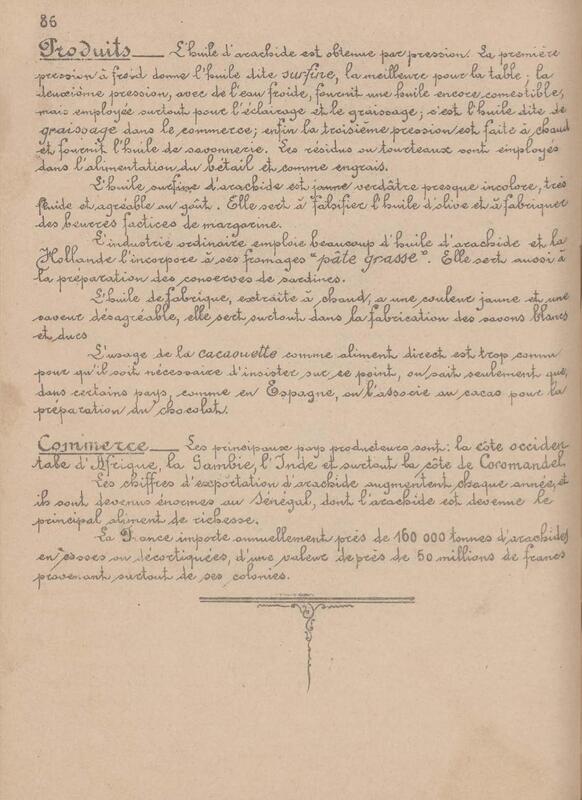 86
Produits__ L'huile d'arachide est obtenue par pression. La première
pression à froid donne l'huile dite surfine, la meilleure pour la table ; la
deuxième pression, avec de l'eau froide, fournit une huile encore comestible,
mais employée surtout pour l'éclairage et le graissage ; c'est l'huile dite de
graissage dans le commerce ; enfin la troisième pression est faite à chaud
et fournit l'huile de savonnerie. Les résidus ou tourteaux sont employés
dans l'alimentation du bétail et comme engrais.
L'huile surfine d'arachide est jaune verdâtre presque incolore, très
fluide et agréable au goût. Elle sert à falsifier l'huile d'olive et à fabriquer
des beurres factices de margarine.
L'industrie ordinaire emploie beaucoup d'huile d'arachide et la
Hollande l'incorpore à ses fromages "pâte grasse". Elle sert aussi à
la préparation des conserves de sardines.
L'huile de fabrique, extraite à chaud, a une couleur jaune et une
saveur désagréable, elle sert surtout dans la fabrication des savons blancs
et durs
L'usage de la cacaouette comme aliment direct est trop connu
pour qu'il soit nécessaire d'insister sur ce point, on sait seulement que,
dans certains pays, comme en Espagne, on l'associe au cacao pour la
préparation du chocolat.
Commerce__ Les principaux pays producteurs sont : la côte occiden
tale d'Afrique, la Gambie, l'Inde et surtout la côte de Coromandel.
Les chiffres d'exportation d'arachide augmentent chaque année, et
ils sont devenus énormes au Sénégal, dont l'arachide est devenue le
principal aliment de richesse.
La France importe annuellement près de 160 000 tonnes d'arachides
en cosses ou décortiquées, d'une valeur de près de 50 millions de francs
provenant surtout de ses colonies.